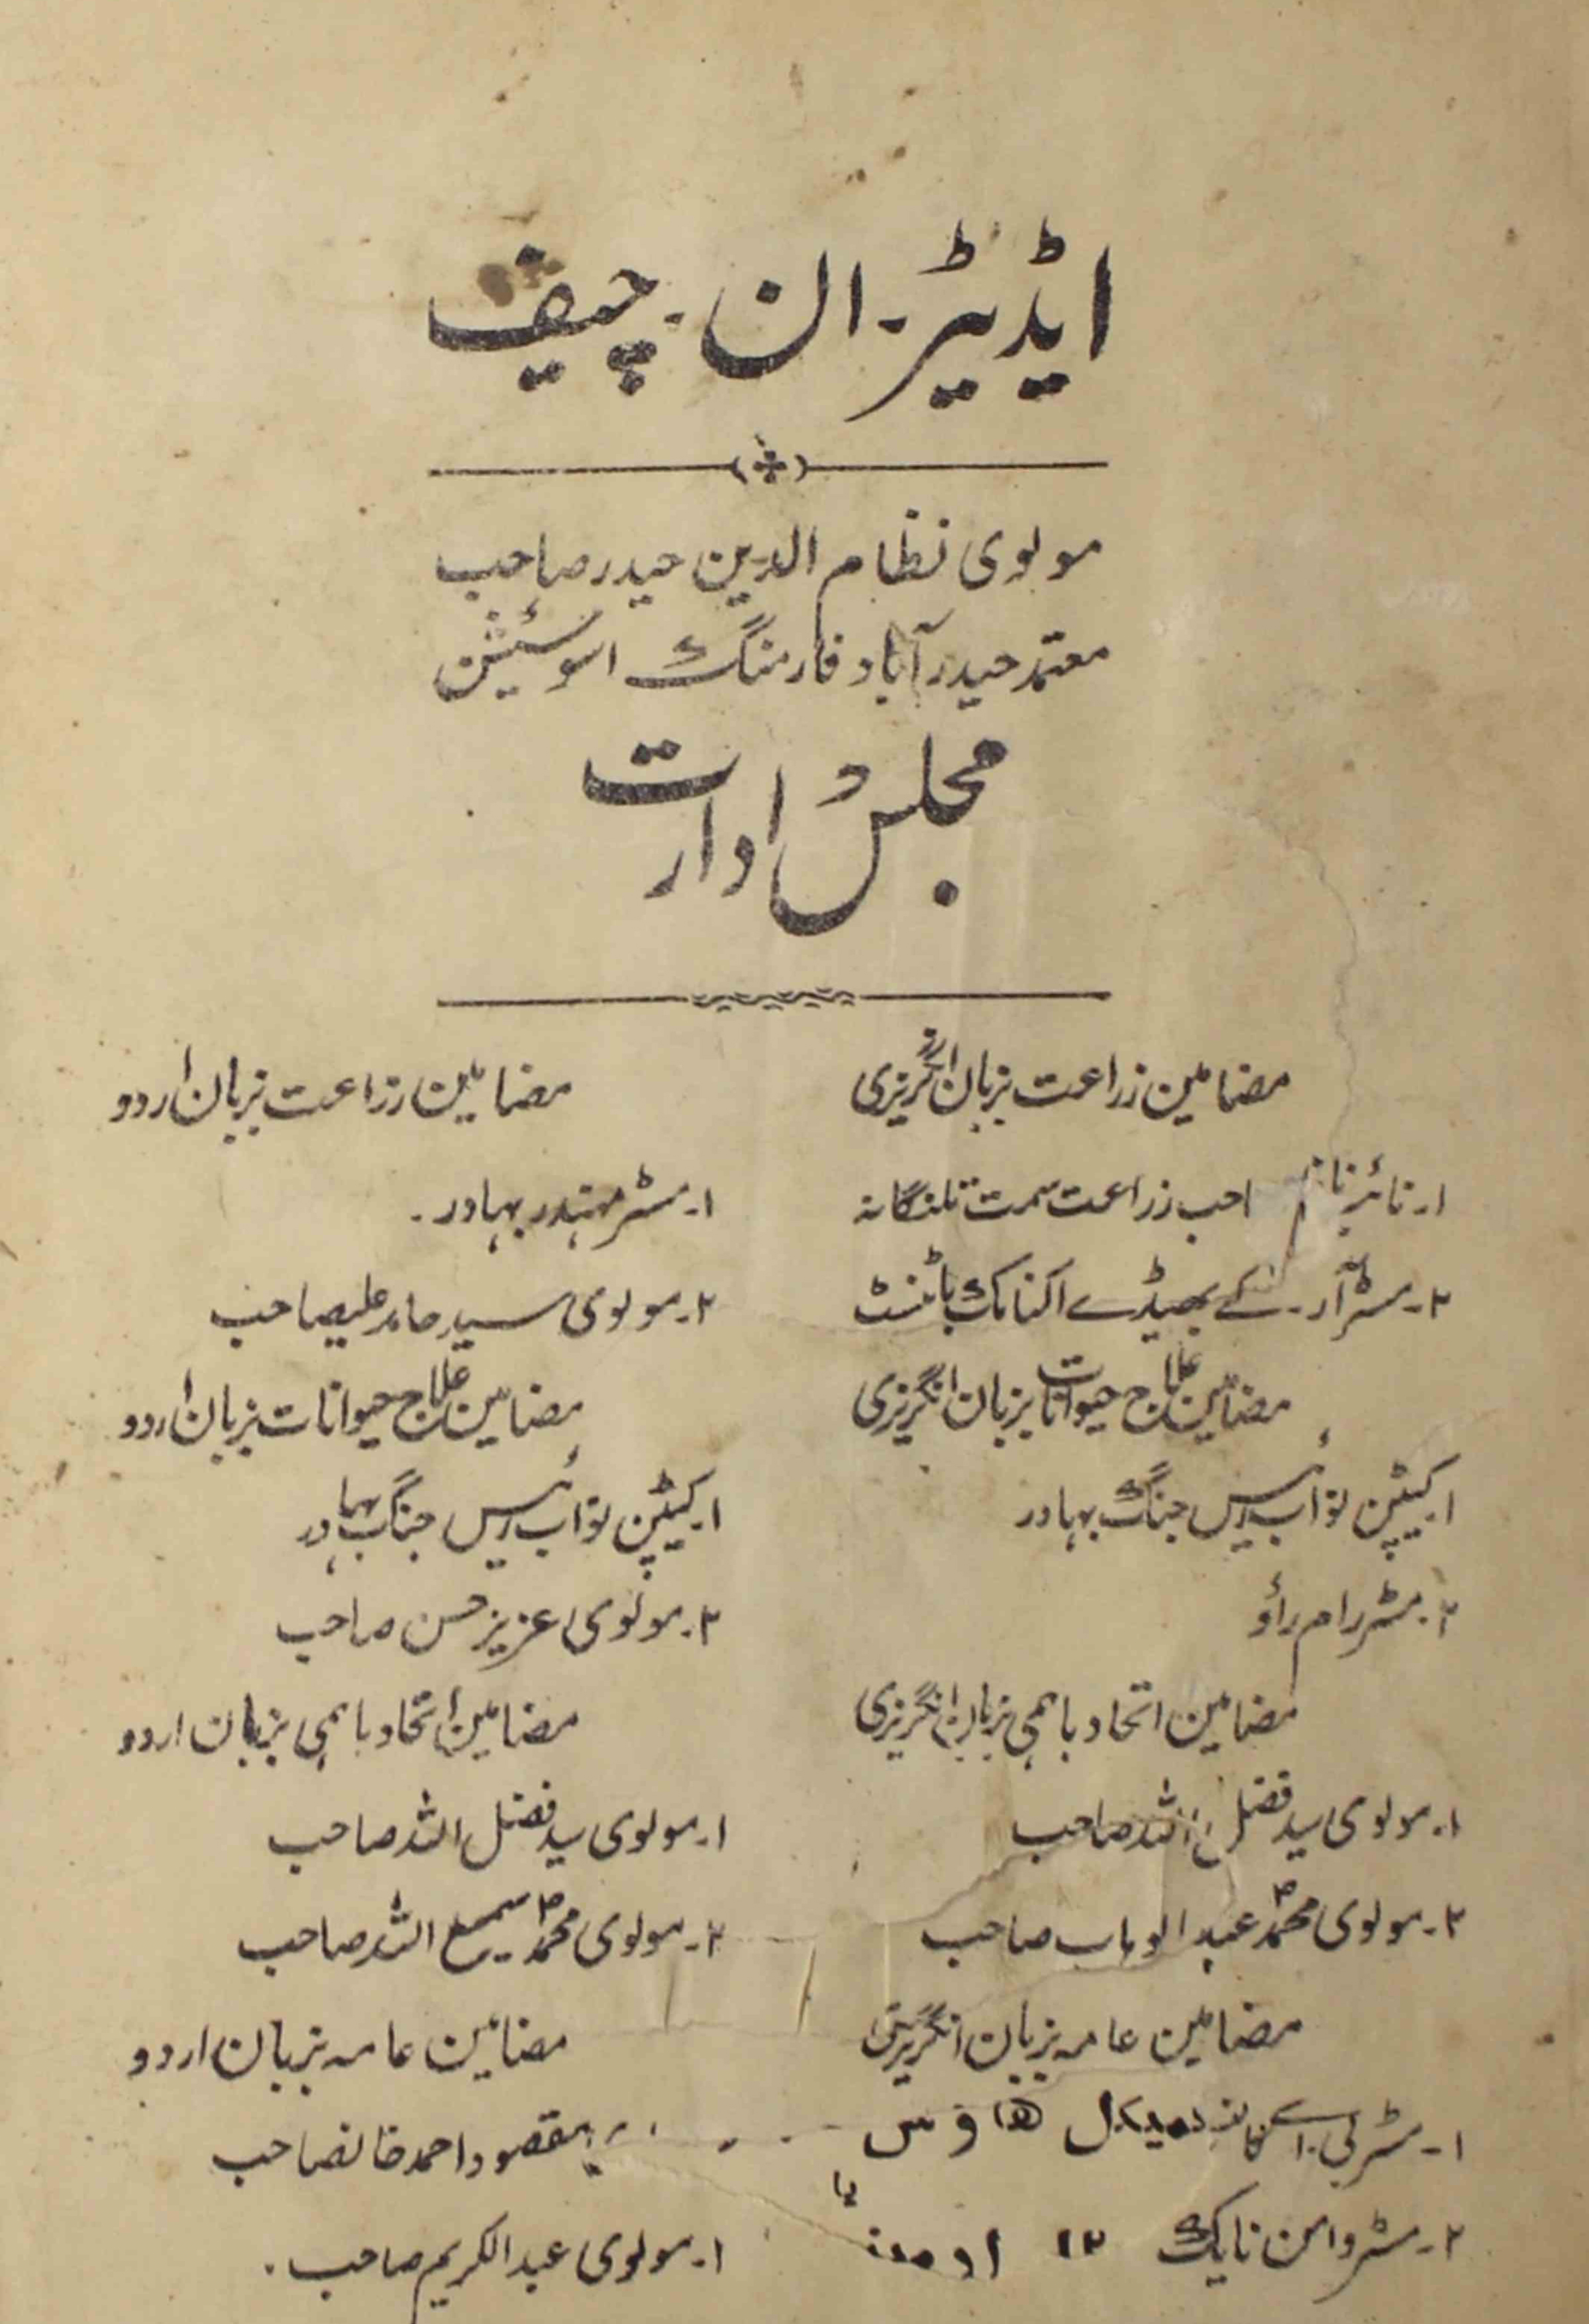 ایڈیٹر۔ان۔چیف
مولوی نظام الدین حیدر صاحب
معتمد حیدرآباد فارمنگ اسوسئیشن
مجلس ادارت
مضامین زراعت بزبان انگریزی
۱۔ نائب احب زراعت سمت تلنگانہ
۲۔ مسٹر آر۔ کے بھیڈے اکنامک باٹنسٹ
مضامین علاج حیوانات بزبان انگریزی
۱۔ کیپٹن نواب رئیس جنگ بہادر
۲۔ مسٹر رام راؤ
مضامین اتحاد باہمی بزبان انگریزی
۱۔ مولوی سید فضل اللہ صاحب
۲۔ مولوی محمد عبد الوہاب صاحب
مضامین عامہ بزبان انگریزی
۱۔ مسٹر بی۔ اے
۲۔ مسٹر وامن نایک
مضامین زراعت بزبان اردو
۱۔ مسٹر مہندر بہادر۔
۲۔ مولوی سید حامد علیصاحب
مضامین علاج حیوانات بزبان اردو
۱۔ کیپٹن نواب رئیس جنگ بہادر
۲۔ مولوی عزیز حسن صاحب
مضامین اتحاد باہمی بزبان اردو
۱۔ مولوی سید فضل اللہ صاحب
۲۔ مولوی محمد سمیع اللہ صاحب
مضامین عامہ بزبان اردو
مقصود احمد خانصاحب
۱۔ مولوی عبد الکریم صاحب۔